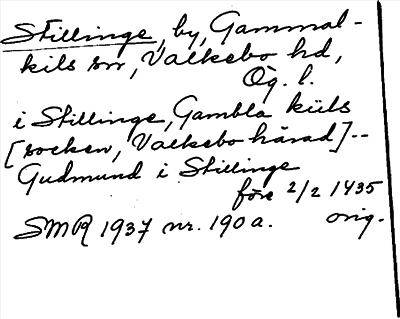 Stillinge, by, Gammal-
kils sn, Valkebo hd,
Ög. l.
i Stillinge, Gambla kiils
[socken, Valkebo härad]--
Gudmund i Stillinge
före 2/2 1435
SMR 1937 nr. 190 a. orig.